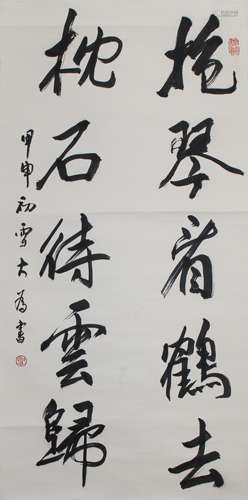 抱琴看鶴去
枕石待雲歸
甲申初雪大為書